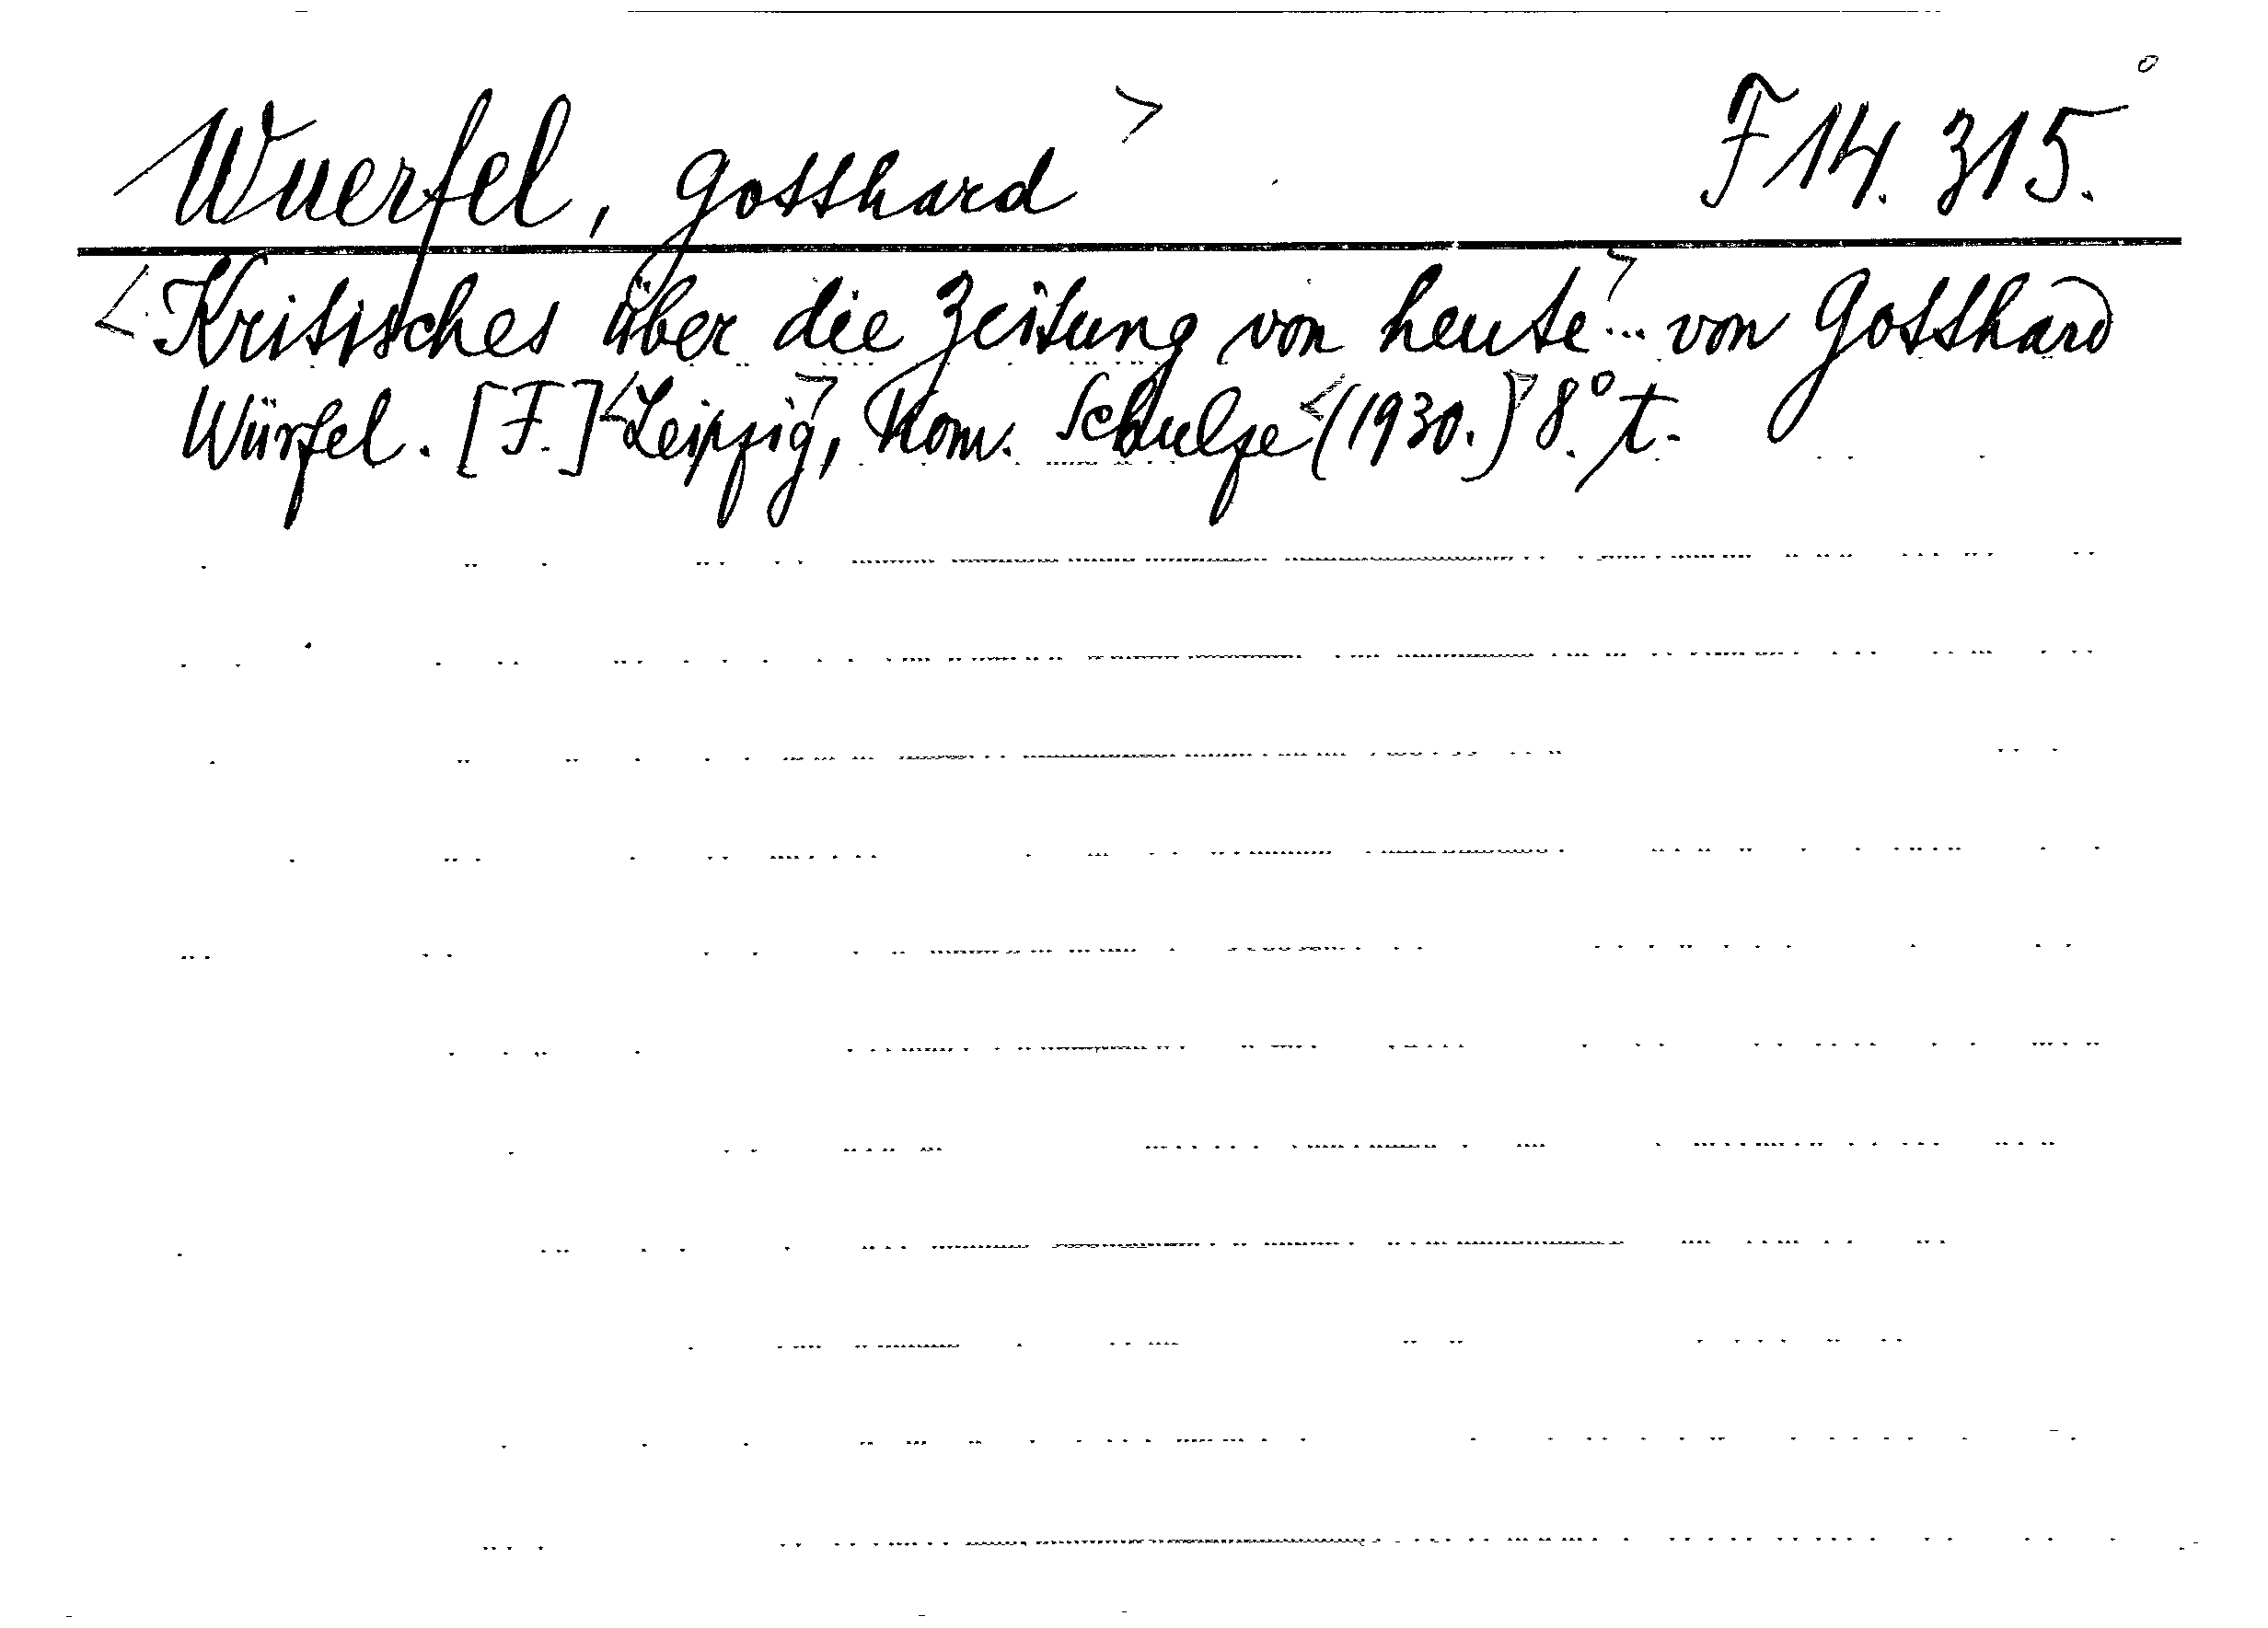 Wuerfel, Gotthard> F 14. 315.
<Kritisches über die Zeitung von heute>... von Gotthard
Würfel. [F.] <Leipzig>, Kom. Schulze <(1930.)> 8.° t.